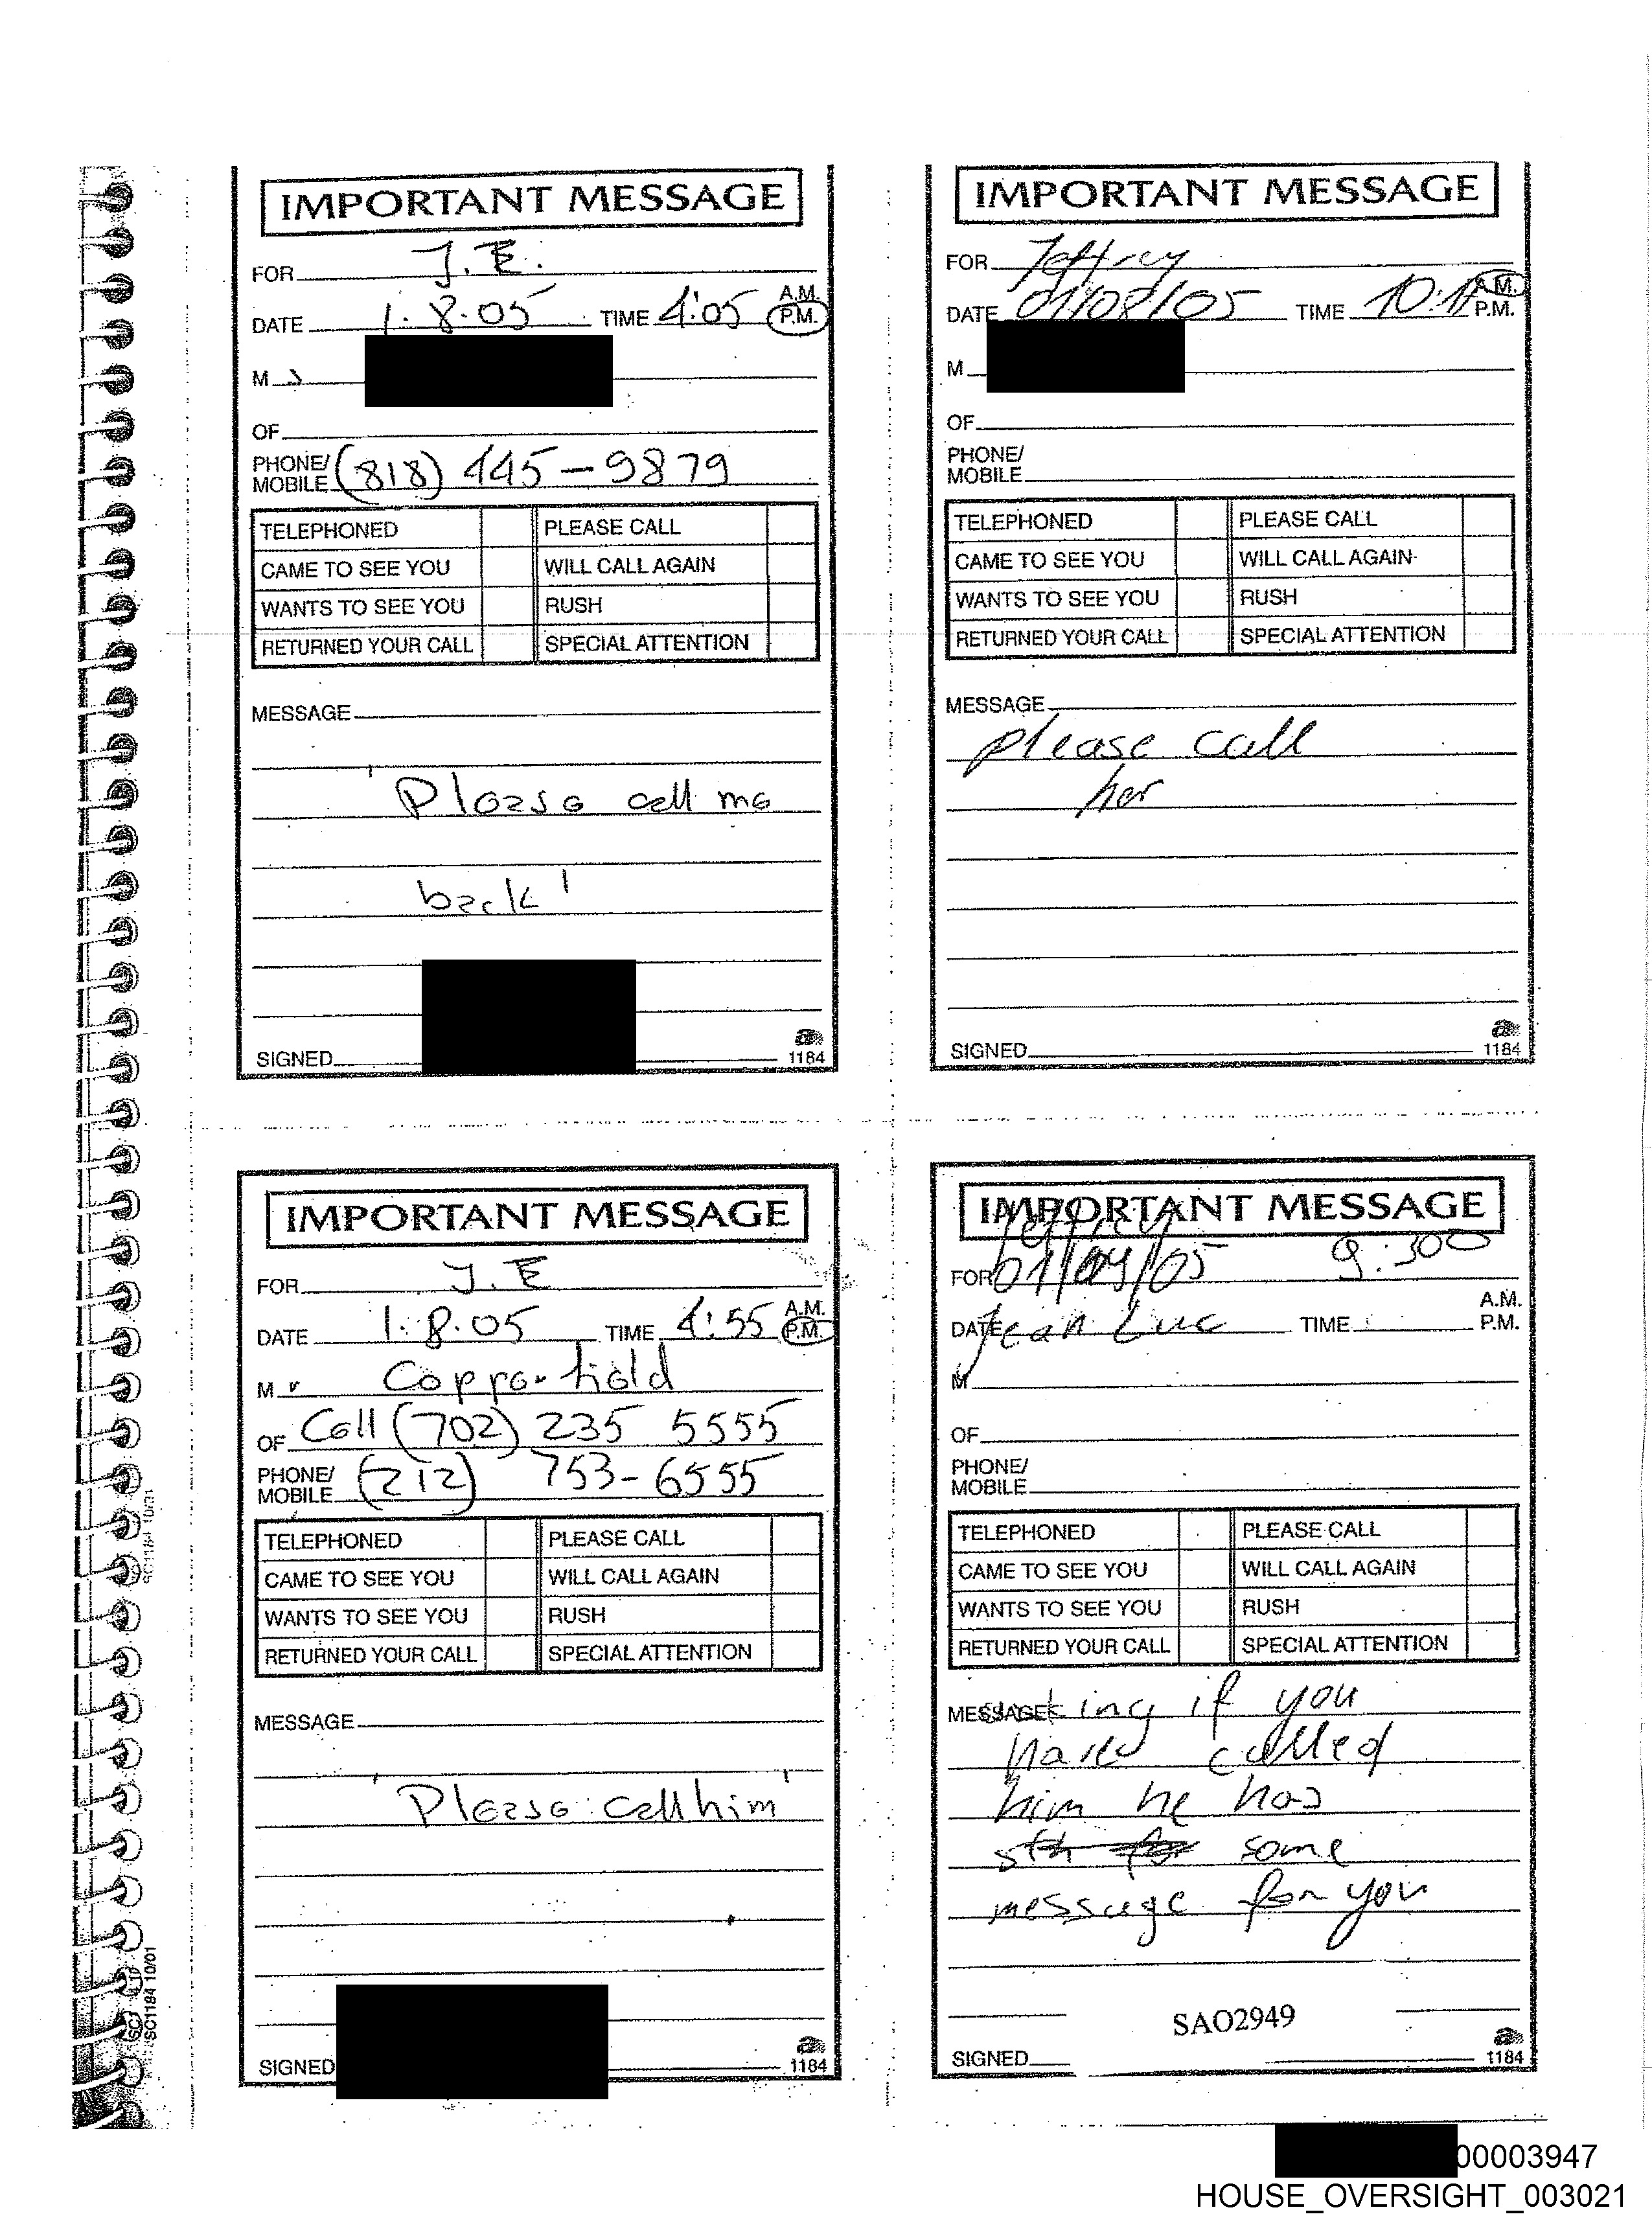 IMPORTANT MESSAGE
FOR J.E.
DATE 1.8.05 TIME 4:05 A.M. P.M.
M s
OF
PHONE/ MOBILE (818) 445-9879
TELEPHONED PLEASE CALL
CAME TO SEE YOU WILL CALL AGAIN
WANTS TO SEE YOU RUSH
RETURNED YOUR CALL SPECIAL ATTENTION
MESSAGE
'Please call me
back'
SIGNED
1184
IMPORTANT MESSAGE
FOR Jeffrey
DATE 01/08/05 TIME 10:17 A.M. P.M.
M
OF
PHONE/ MOBILE
TELEPHONED PLEASE CALL
CAME TO SEE YOU WILL CALL AGAIN
WANTS TO SEE YOU RUSH
RETURNED YOUR CALL SPECIAL ATTENTION
MESSAGE
please call
her
SIGNED
1184
IMPORTANT MESSAGE
FOR J.E
DATE 1.8.05 TIME 4:55 A.M. P.M.
M r Copperfield
OF Cell (702) 235 5555
PHONE/ MOBILE (212) 753-6555
TELEPHONED PLEASE CALL
CAME TO SEE YOU WILL CALL AGAIN
WANTS TO SEE YOU RUSH
RETURNED YOUR CALL SPECIAL ATTENTION
MESSAGE
'Please call him'
SIGNED
1184
SC1184 10/01
IMPORTANT MESSAGE
Jeffrey
FOR 01/09/05 9:30
DATE Jean Luc TIME A.M. P.M.
M
OF
PHONE/ MOBILE
TELEPHONED PLEASE CALL
CAME TO SEE YOU WILL CALL AGAIN
WANTS TO SEE YOU RUSH
RETURNED YOUR CALL SPECIAL ATTENTION
MESSAGE asking if you
have called
him he has
sth for some
message for you
SAO2949
SIGNED
1184
00003947
HOUSE_OVERSIGHT_003021